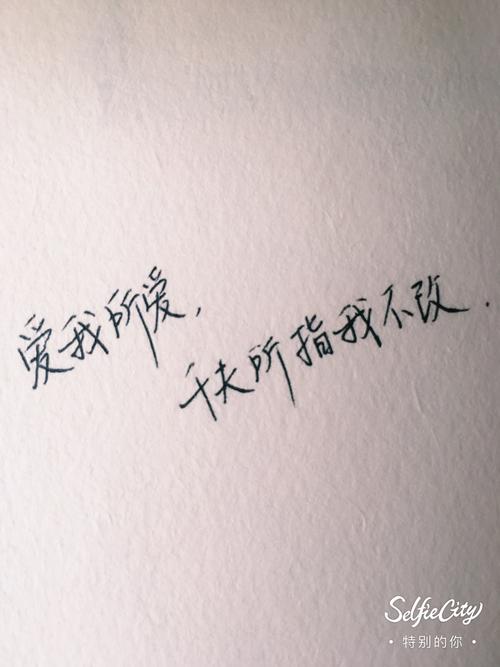 爱我所爱,
千夫所指我不改.
SelfieCity
·特别的你·